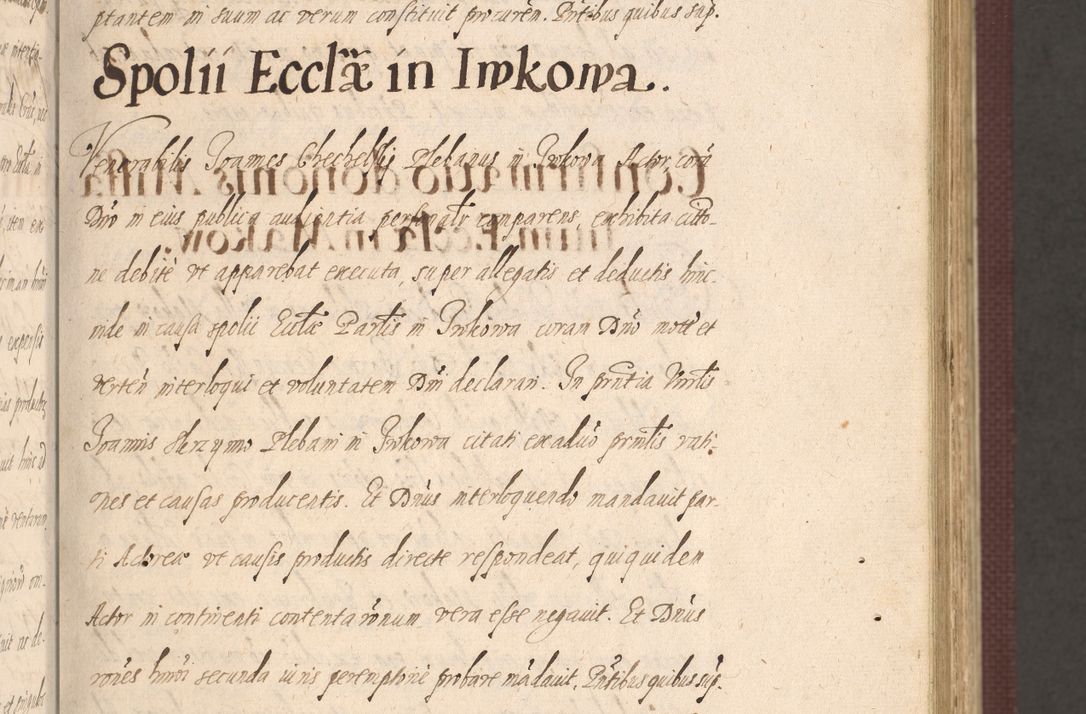 ptantem in suum ac verum constituit procurēn. Pn̄tibus quibus sup.
Spolii Ecclæ in Iwkowa.
Venerabilis Joannes Chechelski Plebanus in Iwkowa Actor corā
Dn̄o in eius publica audientia personalr̄ comparens, exhibita citō-
ne debite vt apparebat executa, super allegatis et deductis hinc
inde in causa spolii Ecclæ Parlis in Iwkowa coram Dn̄o motē et
vertēn interloqui et voluntatem Dn̄i declarari. In prn̄tia Vnrlis
Joannis Plebani in Iwkowa citati ex aduō prn̄tis rati-
ones et causas producentis. Et Dn̄us interloquendo mandauit par-
ti Actoreæ vt causis productis directe respondeat, qui quidem
Actor in continenti contenta rōnum vera esse negauit. Et Dn̄us
rōnes hmōi secunda iuris peremptorie probare mādauit. Pn̄tibus quibus sup.
Confirmatio donōnis Missa
lium Ecclæ in Makow.